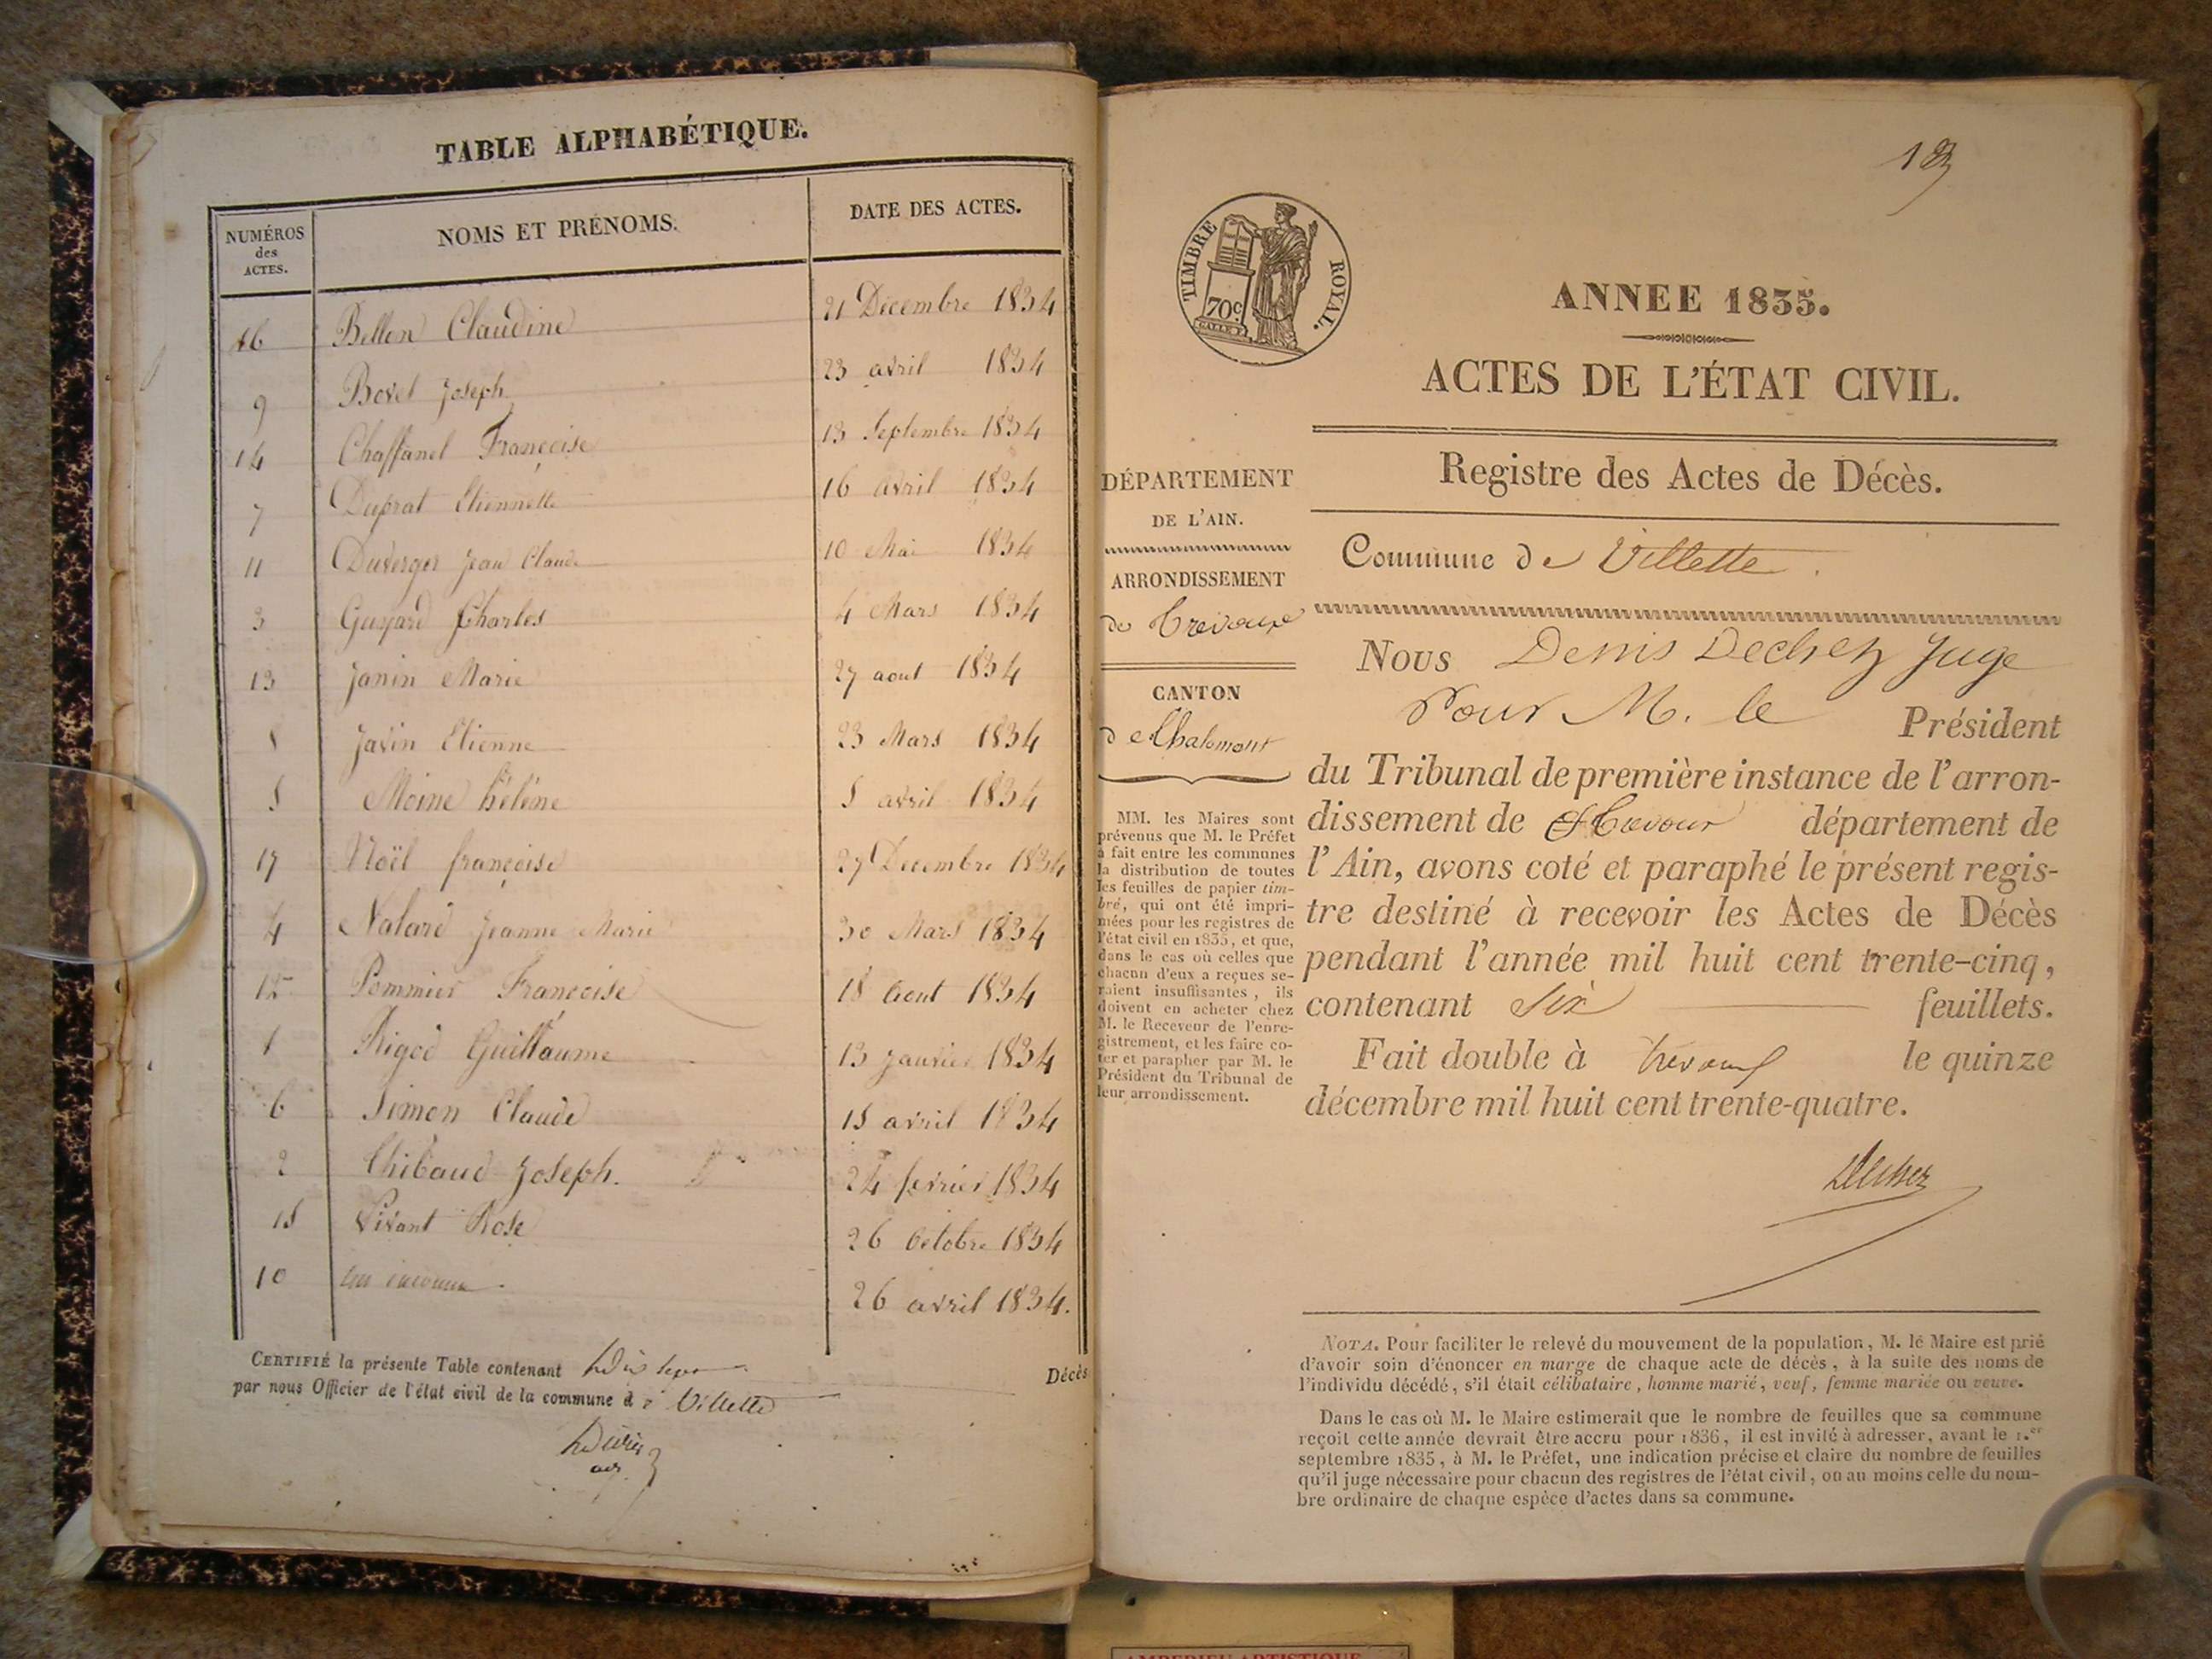 TABLE ALPHABÉTIQUE.
NUMÉROS des ACTES. NOMS ET PRÉNOMS. DATE DES ACTES.
16 Bellon Claudine 21 Décembre 1834
9 Bovet Joseph 23 avril 1834
14 Chaffanel Françoise 13 Septembre 1834
7 Duprat Etiennette 16 avril 1834
11 Duverger Jean Claude 10 Mai 1834
3 Guyard Charles 4 Mars 1834
13 Janin Marie 27 aout 1834
Javin Etienne 23 Mars 1834
5 Moine hélène 5 avril 1834
17 Noël françoise 27 Decembre 1834
4 Nalard Jeanne Marie 30 Mars 1834
12 Pommier Françoise 18 Aout 1834
1 Rigod Guillaume 13 Janvier 1834
6 Simon Claude 15 avril 1834
2 Thibaud Joseph. 24 fevrier 1834
15 Vivant Rose 26 Octobre 1834
10 un inconnu 26 avril 1834.
CERTIFIÉ la présente Table contenant Décès
par nous Officier de l'état civil de la commune d Villette
183
TIMBRE ROYAL.
70c.
ANNEE 1835.
ACTES DE L'ÉTAT CIVIL.
Registre des Actes de Décès.
DÉPARTEMENT
DE L'AIN.
ARRONDISSEMENT
de Trevoux
CANTON
de Chalamont
MM. les Maires sont
prévenus que M. le Préfet
a fait entre les communes
la distribution de toutes
les feuilles de papier tim-
bré, qui ont été impri-
mées pour les registres de
l'état civil en 1835, et que,
dans le cas où celles que
chacun d'eux a reçues se-
raient insuffisantes, ils
doivent en acheter chez
M. le Receveur de l'enre-
gistrement, et les faire co-
ter et parapher par M. le
Président du Tribunal de
leur arrondissement.
Commune de Villette.
Nous Denis Dechez Juge
Pour M. le Président
du Tribunal de première instance de l'arron-
dissement de Trevoux département de
l'Ain, avons coté et paraphé le présent regis-
tre destiné à recevoir les Actes de Décès
pendant l'année mil huit cent trente-cinq,
contenant Six feuillets.
Fait double à Trévoux le quinze
décembre mil huit cent trente-quatre.
Dechez
NOTA. Pour faciliter le relevé du mouvement de la population, M. le Maire est prié
d'avoir soin d'énoncer en marge de chaque acte de décès, à la suite des noms de
l'individu décédé, s'il était célibataire, homme marié, veuf, femme mariée ou veuve.
Dans le cas où M. le Maire estimerait que le nombre de feuilles que sa commune
reçoit cette année devrait être accru pour 1836, il est invité à adresser, avant le 1.er
septembre 1835, à M. le Préfet, une indication précise et claire du nombre de feuilles
qu'il juge nécessaire pour chacun des registres de l'état civil, ou au moins celle du nom-
bre ordinaire de chaque espèce d'actes dans sa commune.
AMBERIEU ARTISTIQUE